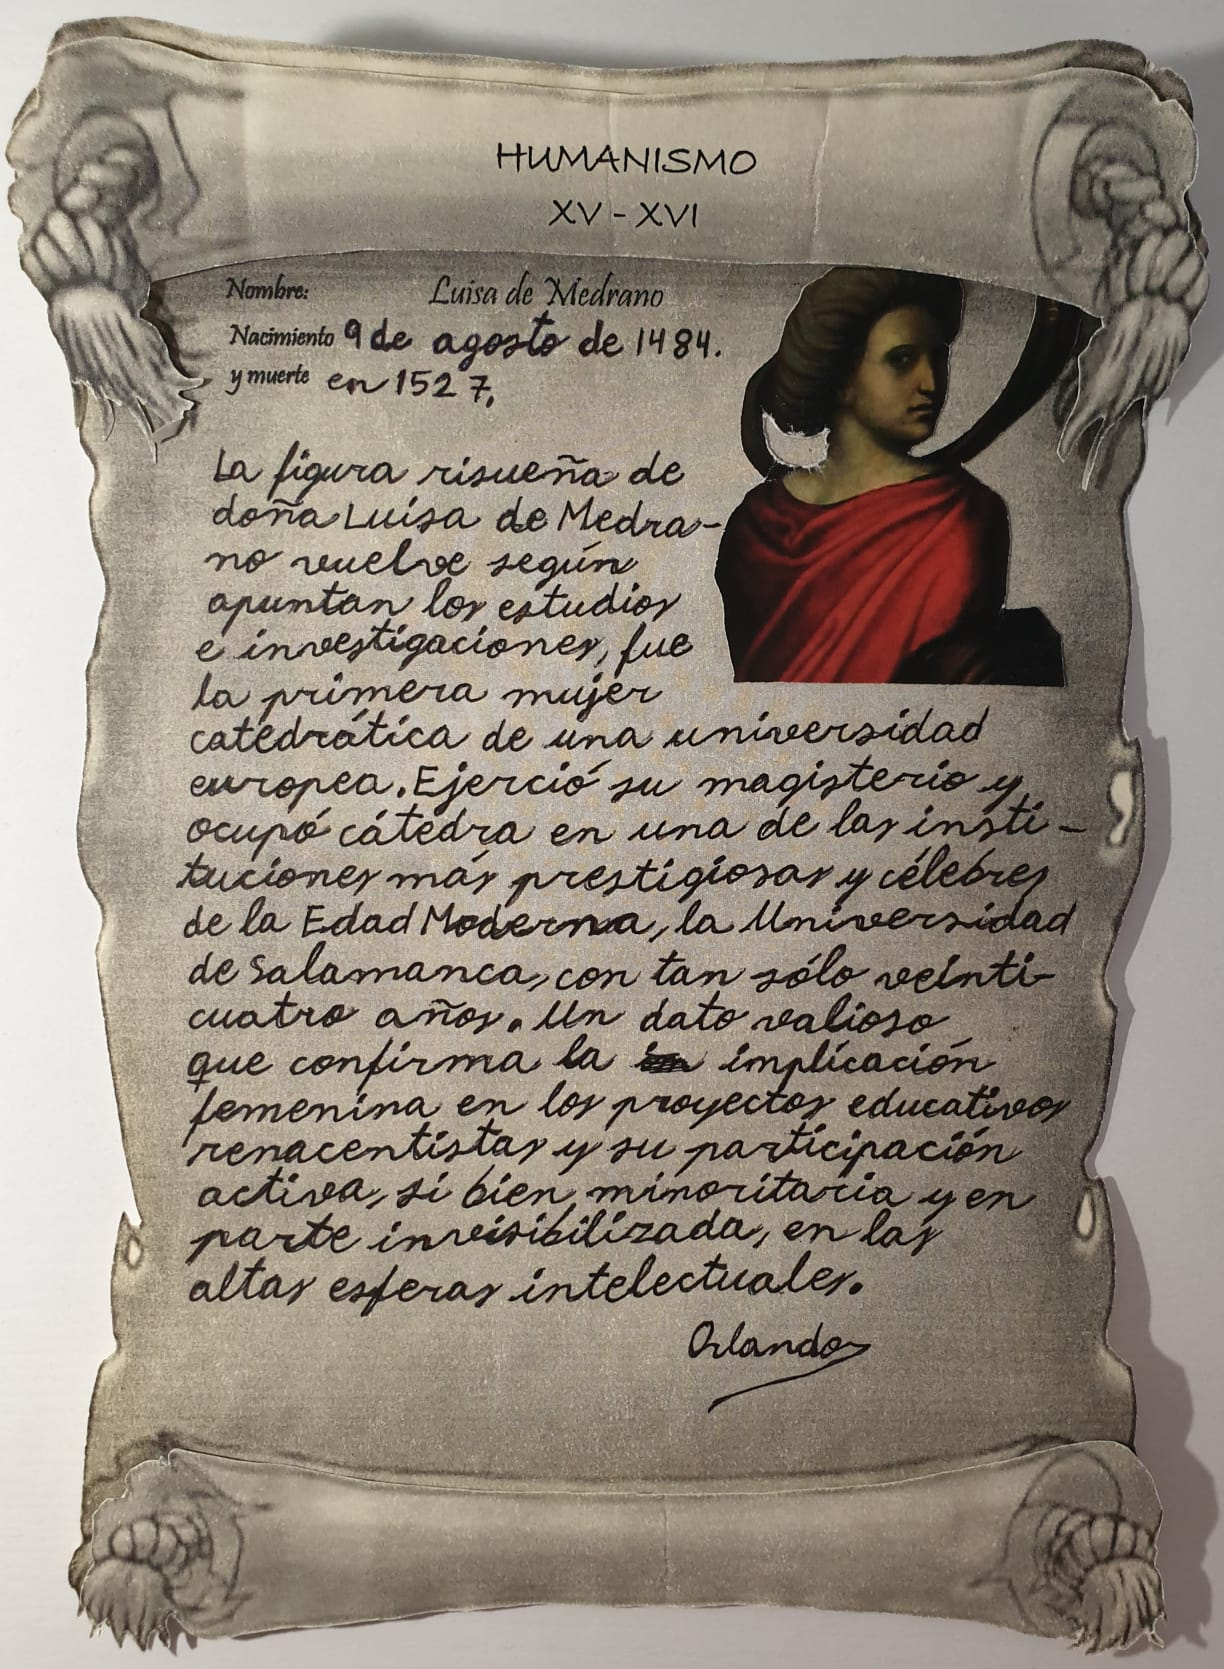 HUMANISMO
XV - XVI
Nombre: Luisa de Medrano
Nacimiento 9 de agosto de 1484.
y muerte en 1527.
La figura risueña de
doña Luisa de Medra-
no vuelve según
apuntan los estudios
e investigaciones, fue
la primera mujer
catedrática de una universidad
europea. Ejerció su magisterio y
ocupó cátedra en una de las insti-
tuciones más prestigiosas y célebres
de la Edad Moderna, la Universidad
de Salamanca, con tan sólo veinti-
cuatro años. Un dato valioso
que confirma la implicación
femenina en los proyectos educativos
renacentistas y su participación
activa, si bien minoritaria y en
parte invisibilizada, en las
altas esferas intelectuales.
Orlando